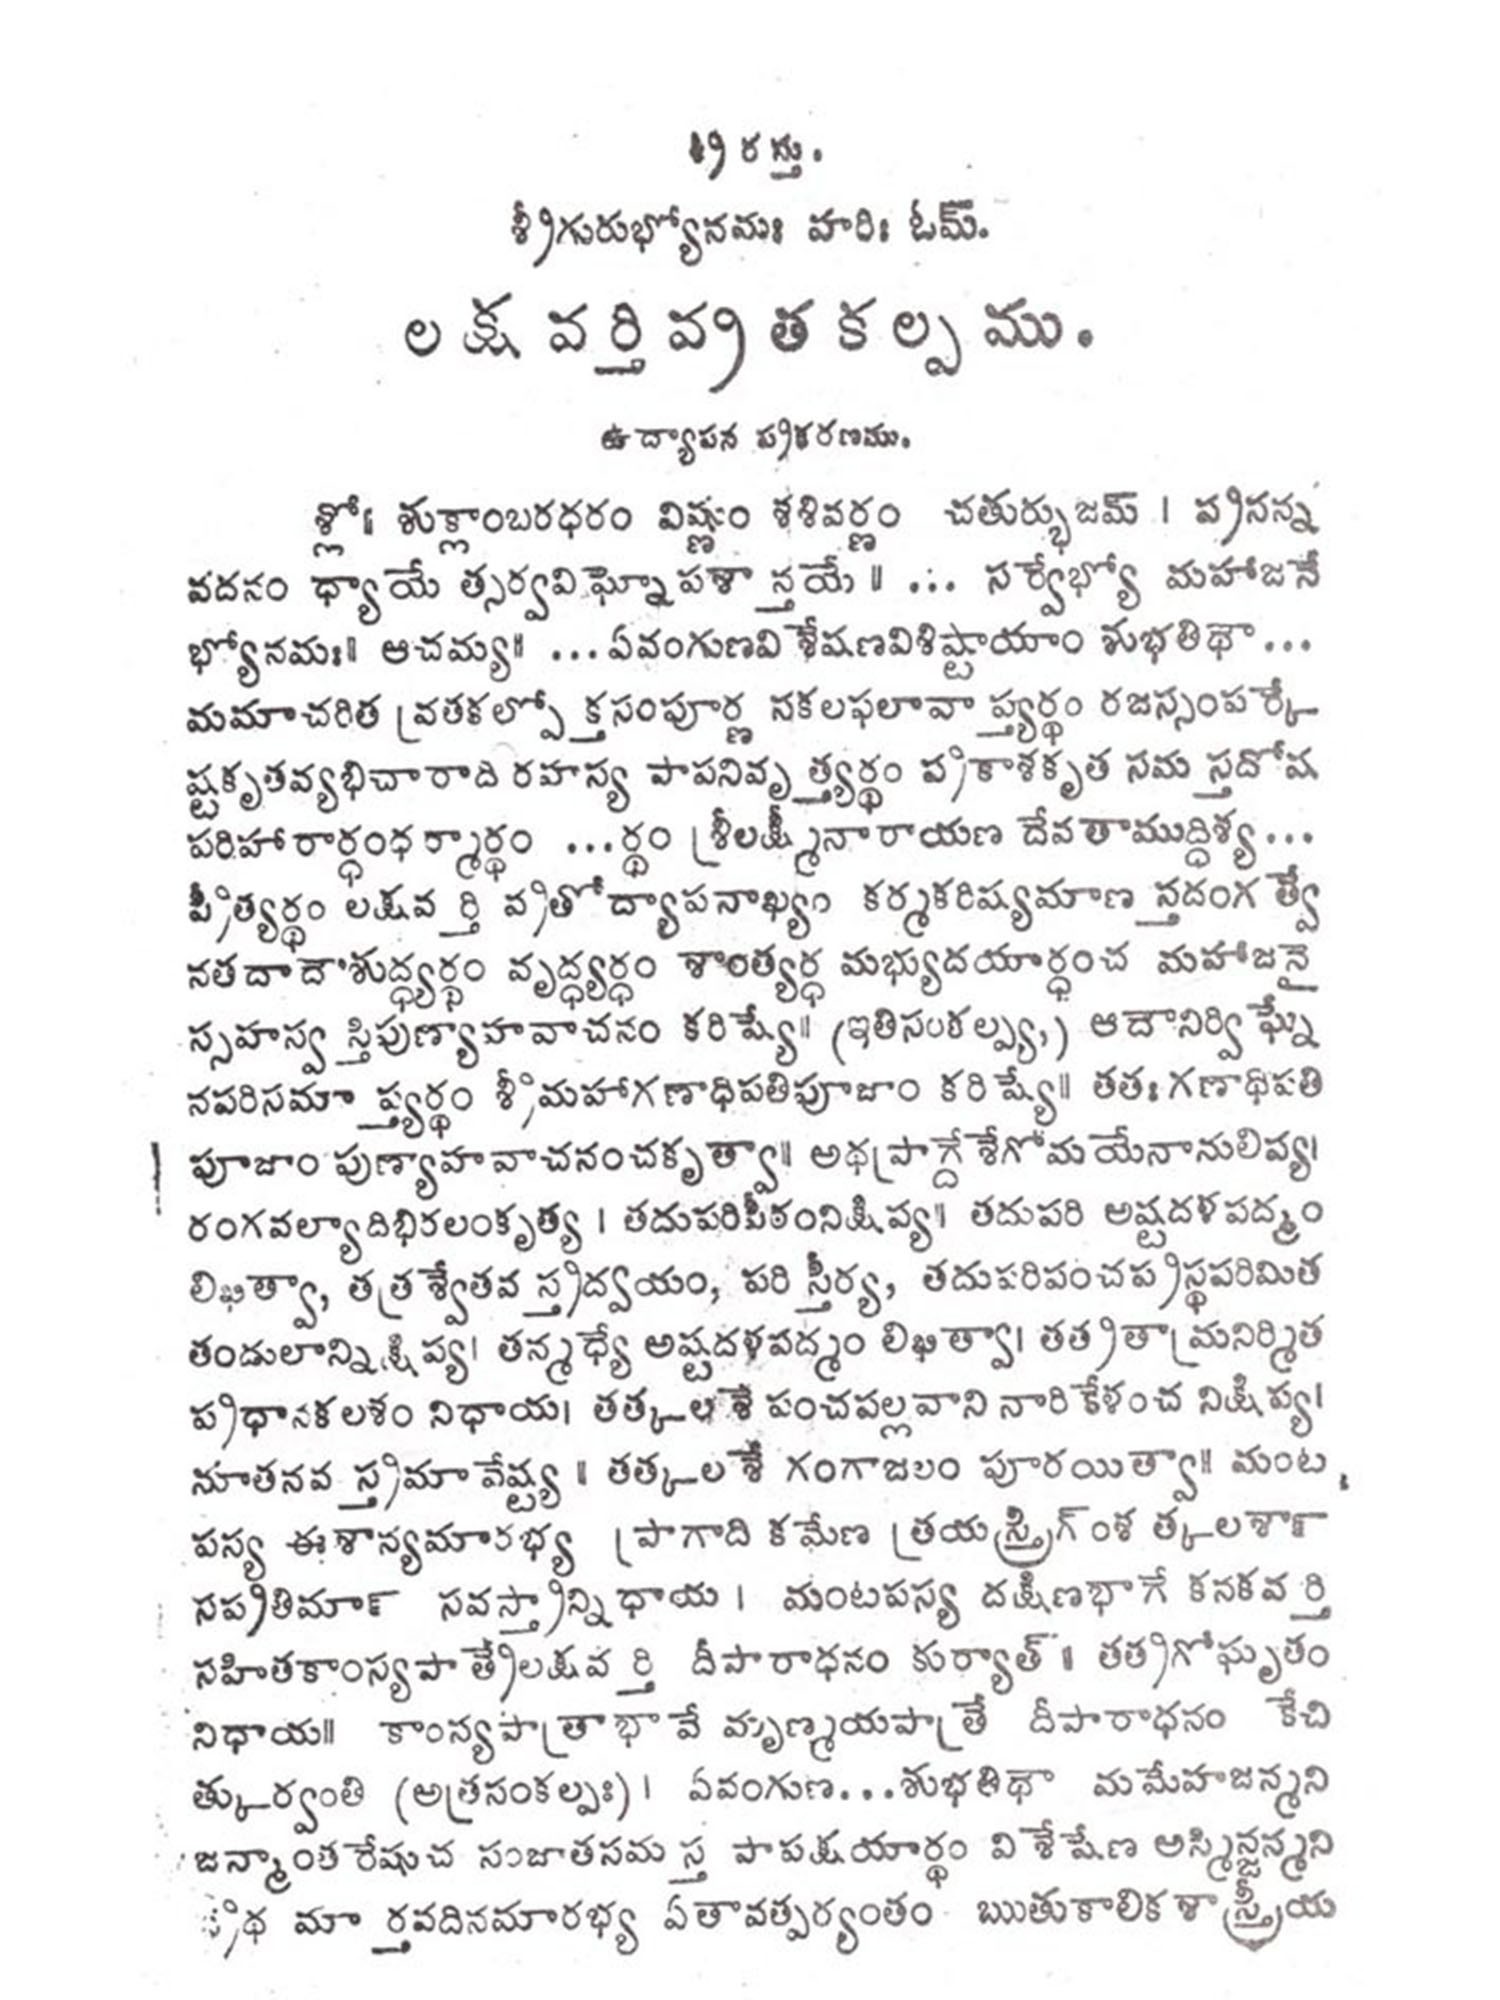 శ్రీ ర స్తు.
శ్రీగురుభ్యోనమః హరిః ఓమ్.
ల క్ష వ ర్తి వ్ర త క ల్ప ము.
ఉద్యాపన ప్రకరణము.
శ్లో॥ శుక్లాంబరధరం విష్ణుం శశివర్ణం చతుర్భుజమ్ । ప్రసన్న
వదనం ధ్యాయే త్సర్వవిఘ్నోపశా న్తయే ॥ ... సర్వేభ్యో మహాజనే
భ్యోనమః॥ ఆచమ్య॥ ...ఏవంగుణవిశేషణవిశిష్టాయాం శుభతిథౌ...
మమాచరిత వ్రతకల్పో క్తసంపూర్ణ సకలఫలావా ప్త్యర్థం రజస్సంపర్కే
ష్టకృతవ్యభిచారాది రహస్య పాపనివృ త్త్యర్థం ప్రకాశకృత సమ స్తదోష
పరిహారార్ధంధర్మార్థం ...ర్థం శ్రీలక్ష్మీనారాయణ దేవతాముద్దిశ్య...
ప్రీత్యర్థం లక్షవ ర్తి వ్రతోద్యాపనాఖ్యం కర్మకరిష్యమాణ స్తదంగ త్వే
నతదాదౌశుద్ధ్యర్థం వృద్ధ్యర్ధం శాంత్యర్ధ మభ్యుదయార్ధంచ మహాజనై
స్సహస్వ స్తిపుణ్యాహవాచనం కరిష్యే॥ (ఇతిసంకల్ప్య,) ఆదౌనిర్విఘ్నే
నపరిసమా ప్త్యర్థం శ్రీమహాగణాధిపతిపూజాం కరిష్యే॥ తతః గణాధిపతి
పూజాం పుణ్యాహవాచనంచకృత్వా॥ అథప్రాగ్దేశేగోమయేనానులిప్య।
రంగవల్యాదిభిరలంకృత్య । తదుపరిపీఠంనిక్షిప్య॥ తదుపరి అష్టదళపద్మం
లిఖిత్వా, తత్రశ్వేతవ స్త్రద్వయం, పరి స్తీర్య, తదుపరిపంచప్రస్థపరిమిత
తండులాన్నిక్షిప్య। తన్మధ్యే అష్టదళపద్మం లిఖిత్వా। తత్రతామ్రనిర్మిత
ప్రధానకలశం నిధాయ। తత్కలశే పంచపల్లవాని నారికేళంచ నిక్షిప్య।
నూతనవ స్త్రమావేష్ట్య ॥ తత్కలశే గంగాజలం పూరయిత్వా॥ మంట
పస్య ఈశాన్యమారభ్య ప్రాగాది కమేణ త్రయస్త్రిగ్ంశ త్కలశాన్
సప్రతిమాన్ సవస్త్రాన్నిధాయ । మంటపస్య దక్షిణభాగే కనకవ ర్తి
సహితకాంస్యపాత్రేలక్షవ ర్తి దీపారాధనం కుర్యాత్ ॥ తత్రగోఘృతం
నిధాయ॥ కాంస్యపాత్రాభావే మృణ్మయపాత్రే దీపారాధనం కేచి
త్కుర్వంతి (అత్రసంకల్పః)। ఏవంగుణ...శుభతిథౌ మమేహజన్మని
జన్మాంతరేషుచ సంజాతసమ స్త పాపక్షయార్థం విశేషేణ అస్మిన్జన్మని
ప్రథ మా ర్తవదినమారభ్య ఏతావత్పర్యంతం ఋతుకాలికశాస్త్రీయ